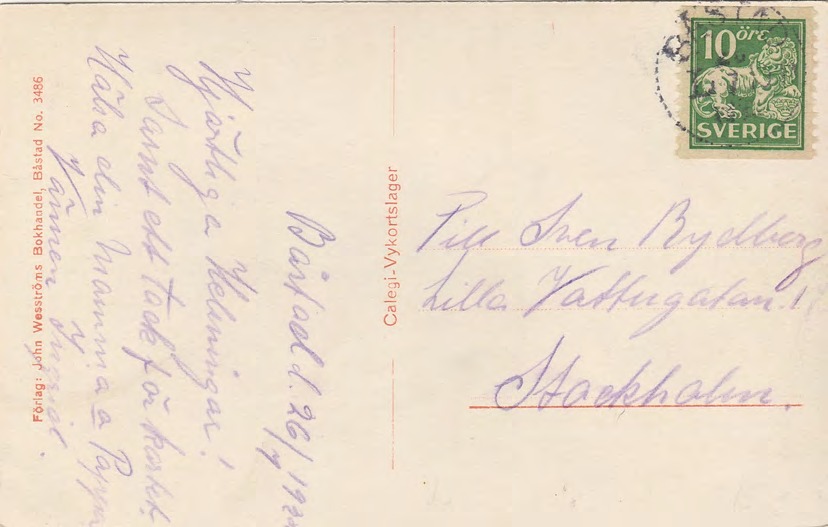 Båstad d. 26/7 192
Hjärtliga Helsningar!
Samt ett tack för kortet.
Hälsa din Mamma a Pappa
Vännen Ingrid.
Förlag: John Wesströms Bokhandel, Båstad No. 3486
Calegi-Vykortslager
10 öre
SVERIGE
Till Sven Rydberg
Lilla Vattugatan 1
Stockholm.